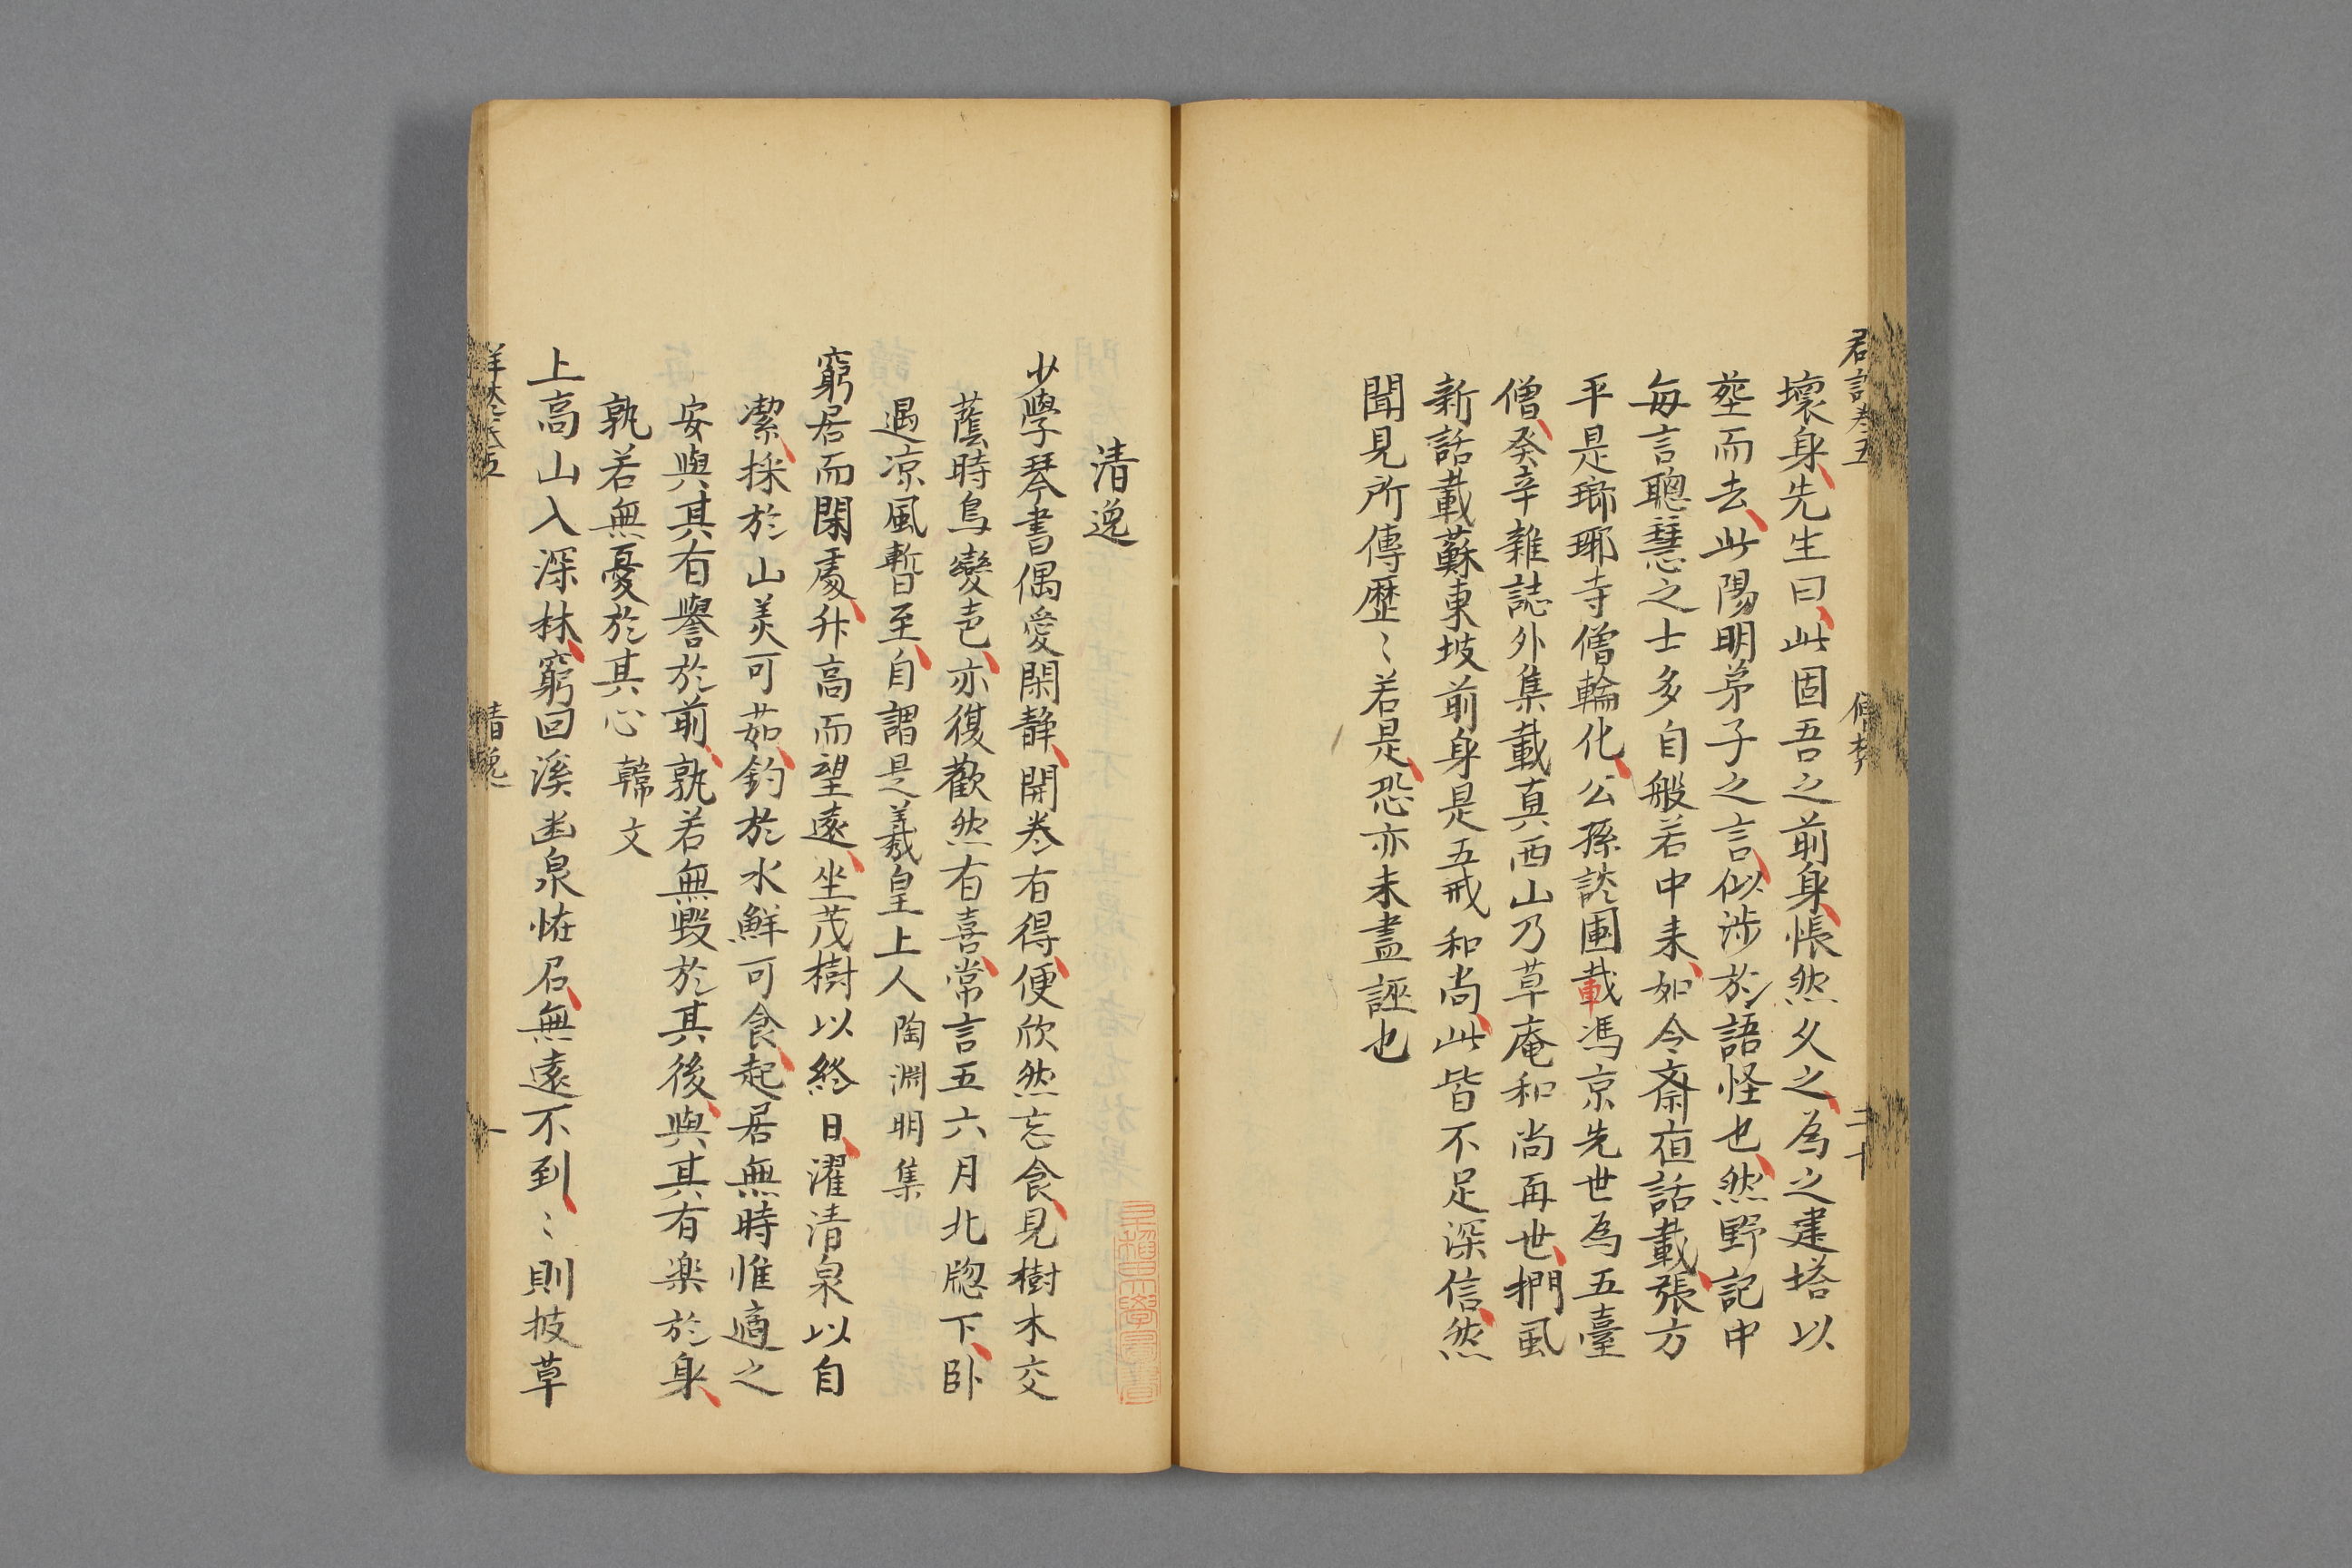 壞身先生曰此固吾之前身悵然久之為之建塔以
塟而去此陽明弟子之言似涉於語怪也然野記中
每言聰慧之士多自般若中来如今齋宿話載張方
平是瑯琊寺僧輪化公孫談圃載馮京先世為五臺
僧癸辛雜誌外集載真西山乃草庵和尚再世捫虱
新話載蘇東坡前身是五戒和尚此皆不足深信然
聞見所傳歷〻若是恐亦未盡誣也
清逸
少學琴書偶愛閑靜開卷有得便欣然忘食見樹木交
蔭時鳥變声亦復歡然有喜常言五六月北牕下卧
遇凉風暫至自謂是羲皇上人 陶淵明集
窮居而閑處升高而望遠坐茂樹以終日濯清泉以自
潔採於山美可茹釣於水鮮可食起居無時惟適之
安與其有譽於前孰若無毀於其後與其有楽於身
孰若無憂於其心 韓文
上高山入深林窮回溪幽泉怪石無遠不到〻則披草
清逸